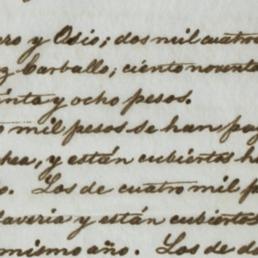 ro y Osio; dos mil cuatro
z Carballo; ciento noventa
inta y ocho pesos.
o mil pesos se han pag
hea, y están cubiertos h
o. Los de cuatro mil p
laveria y están cubiertos
mismo año. Los de do